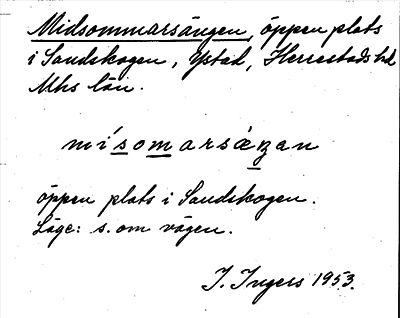 Midsommarsängen, öppen plats
i Sandskogen, Ystad, Herrestads hd
Mhs län.
mísomarsæŋan
öppen plats i Sandskogen.
Läge: s. om vägen.
I. Ingers 1953.